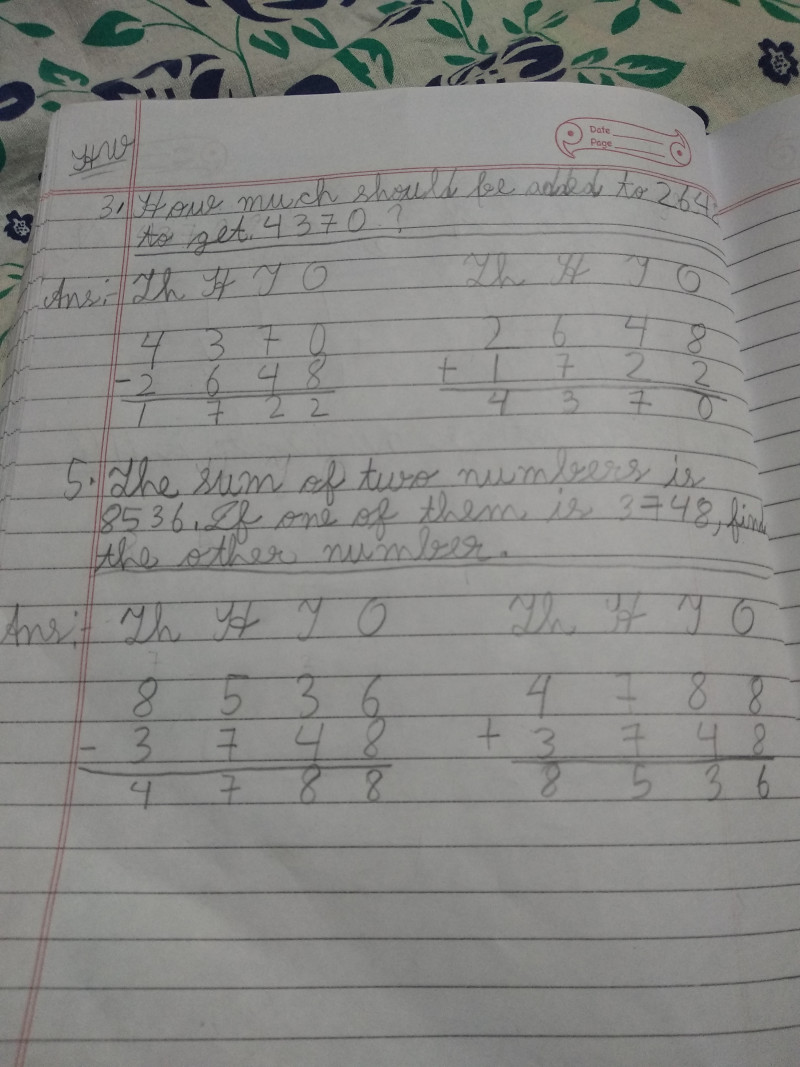 HW
Date
Page
3. How much should be added to 264
to get 4370?
Ans:- Th H T O Th H T O
4 3 7 0 2 6 4 8
- 2 6 4 8 + 1 7 2 2
1 7 2 2 4 3 7 0
5. The sum of two numbers is
8536. If one of them is 3748, find
the other number.
Ans:- Th H T O Th H T O
8 5 3 6 4 7 8 8
- 3 7 4 8 + 3 7 4 8
4 7 8 8 8 5 3 6